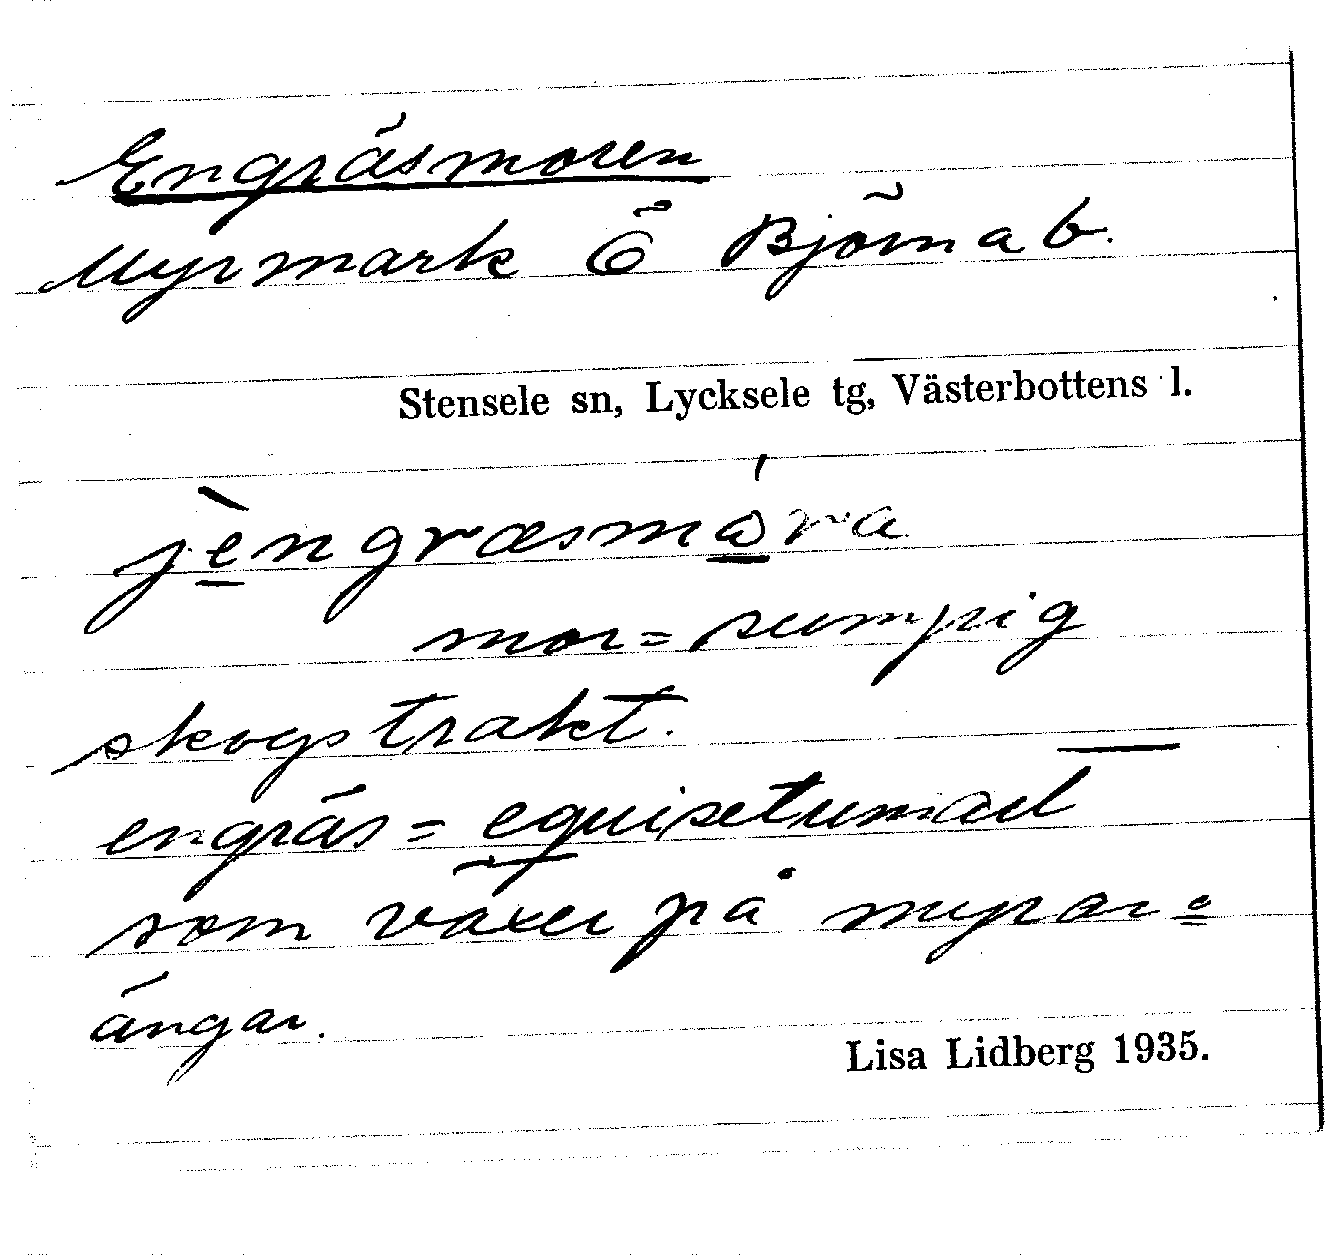 Engräsmoren
Myrmark Ö Björnab.
Stensele sn, Lycksele tg, Västerbottens l.
jèngræsmåra
mor = sumpig
skogstrakt.
engräs =
som växer på myrar =
ängar.
Lisa Lidberg 1935.